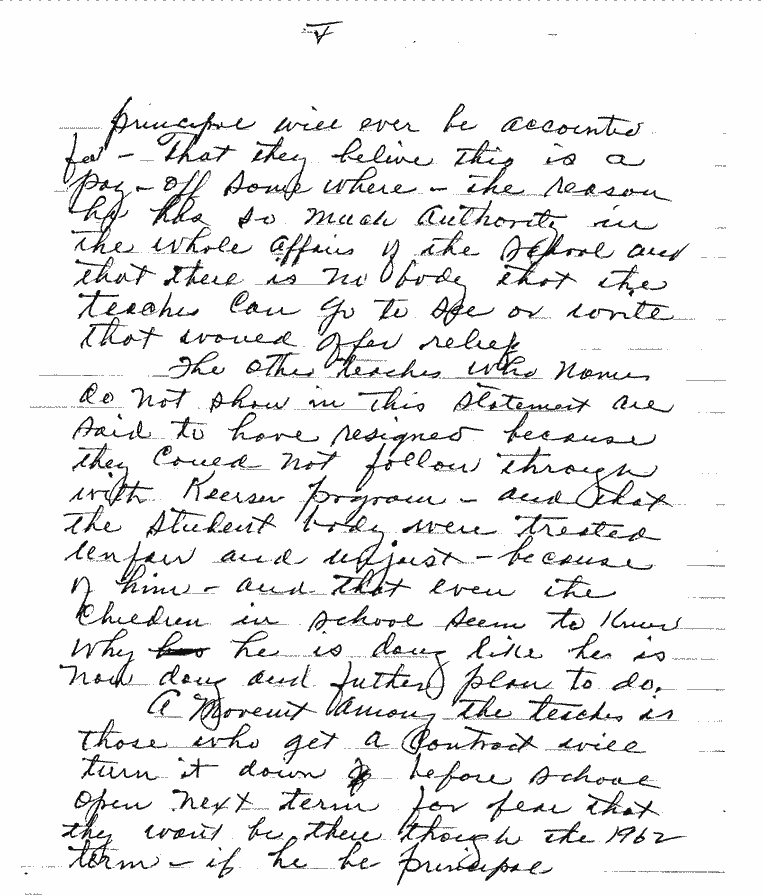 V
principal will ever be accounted
for - That they belive this is a
pay-off some where - the reason
he has so much authority in
the whole affairs of the school and
that there is no body that the
teaches can go to see or write
that would offer relief
The other teaches who names
do not show in this statement are
said to have resigned because
they could not follow through
with program - and that
the student body were treated
unfair and unjust - because
of him - and that even the
children in school seem to know
why he is doug like he is
now doug and futher plan to do.
A Movent among the teaches is
those who get a contract will
turn it down before school
open next term for fear that
they won't be there though the 1962
term - if he be principal